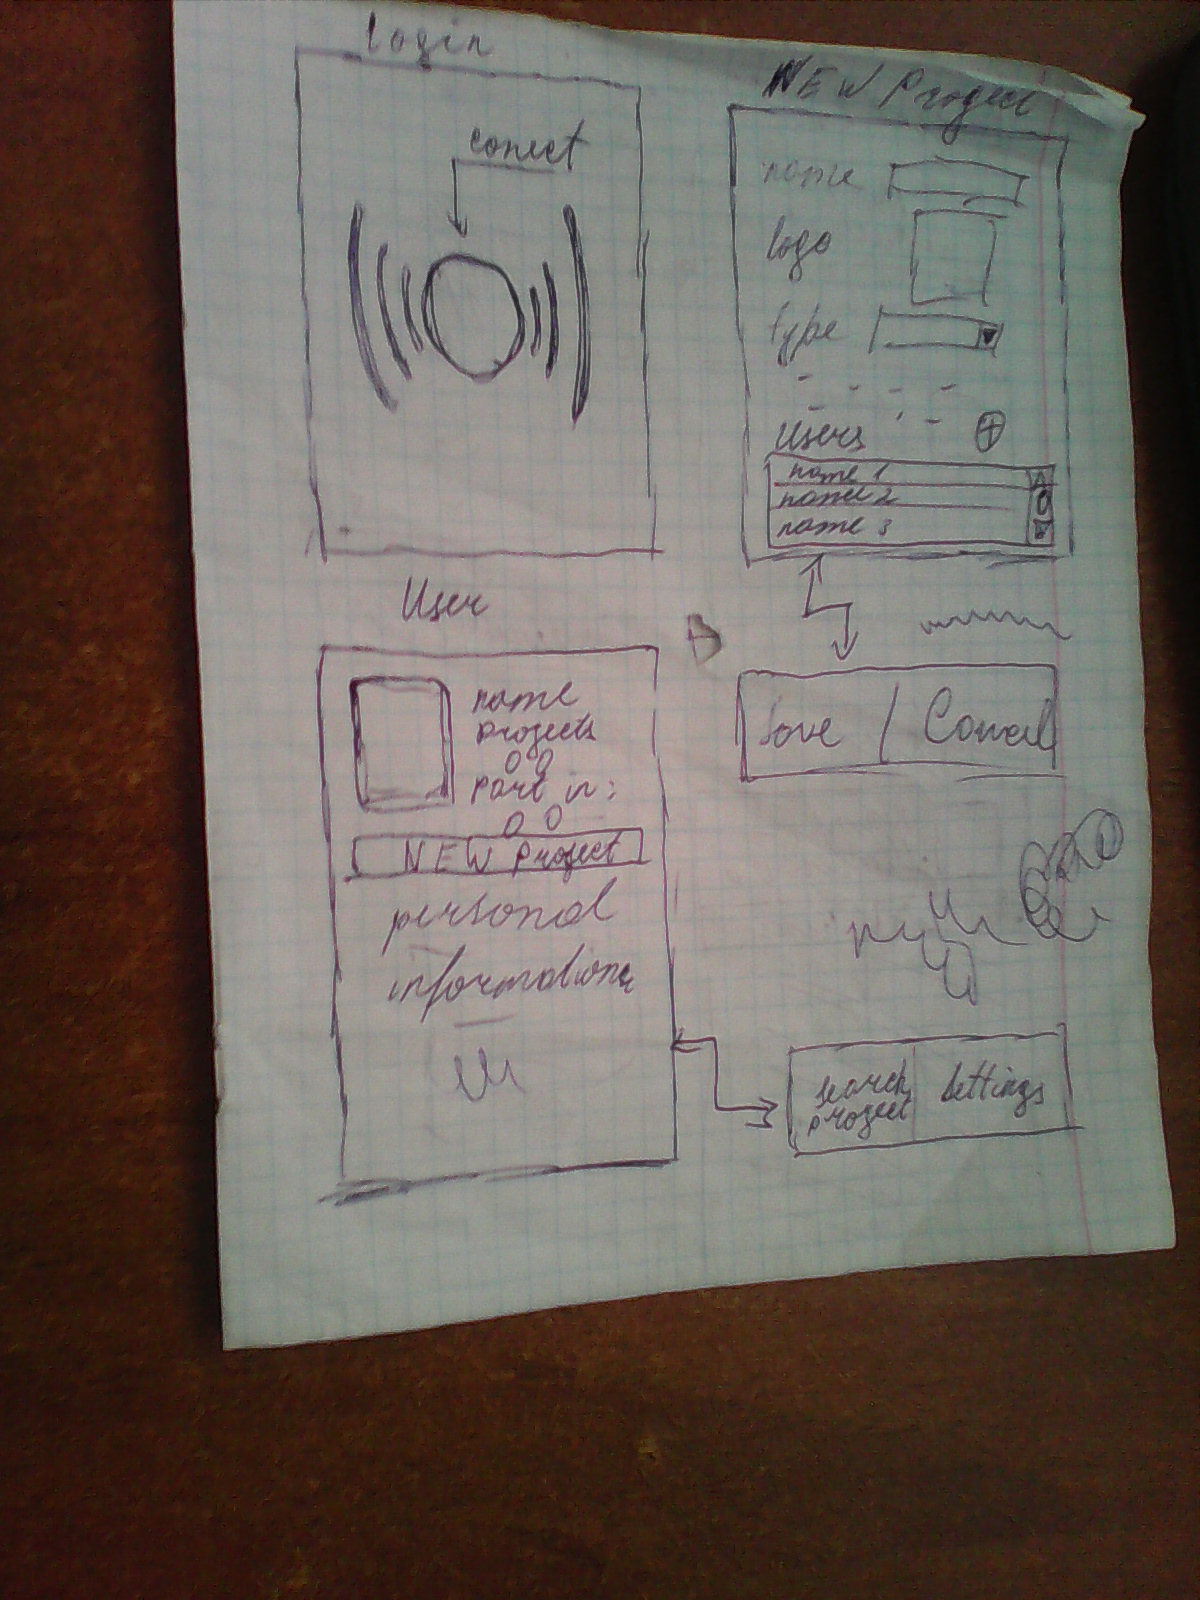 Login
conect
NEW Project
name
logo
type
Users
name 1
name 2
name 3
User
name
projects
part in:
NEW Project
personal
informations
Save / Cancel
search
project
Settings